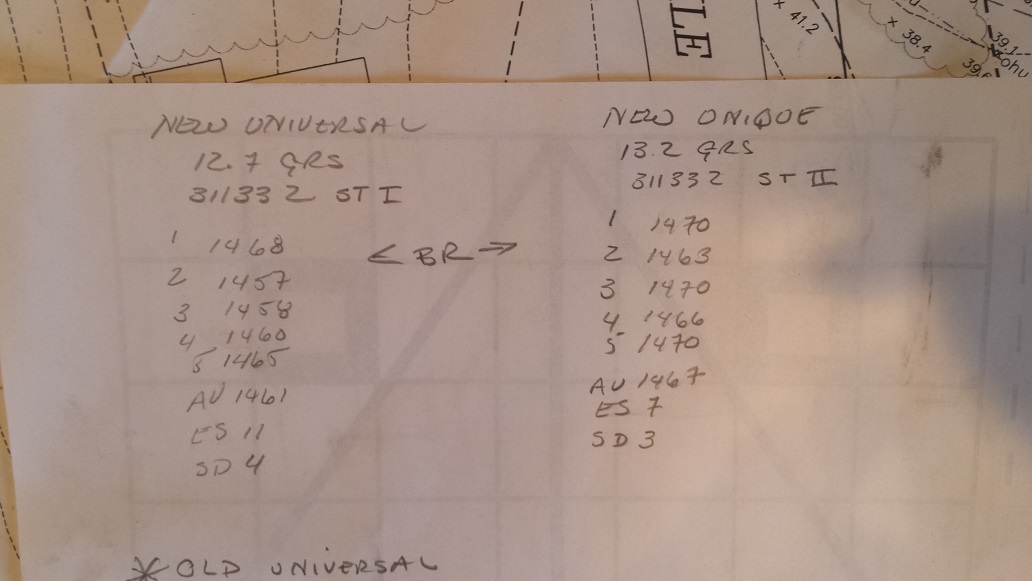 LE
× 41.2
× 38.4
39.1
NEW UNIVERSAL
12.7 GRS
311332 ST I
1 1468
2 1457
3 1458
4 1460
5 1465
AV 1461
ES 11
SD 4
< BR >
NEW UNIQUE
13.2 GRS
311332 ST II
1 1470
2 1463
3 1470
4 1466
5 1470
AV 1467
ES 7
SD 3
* OLD UNIVERSAL